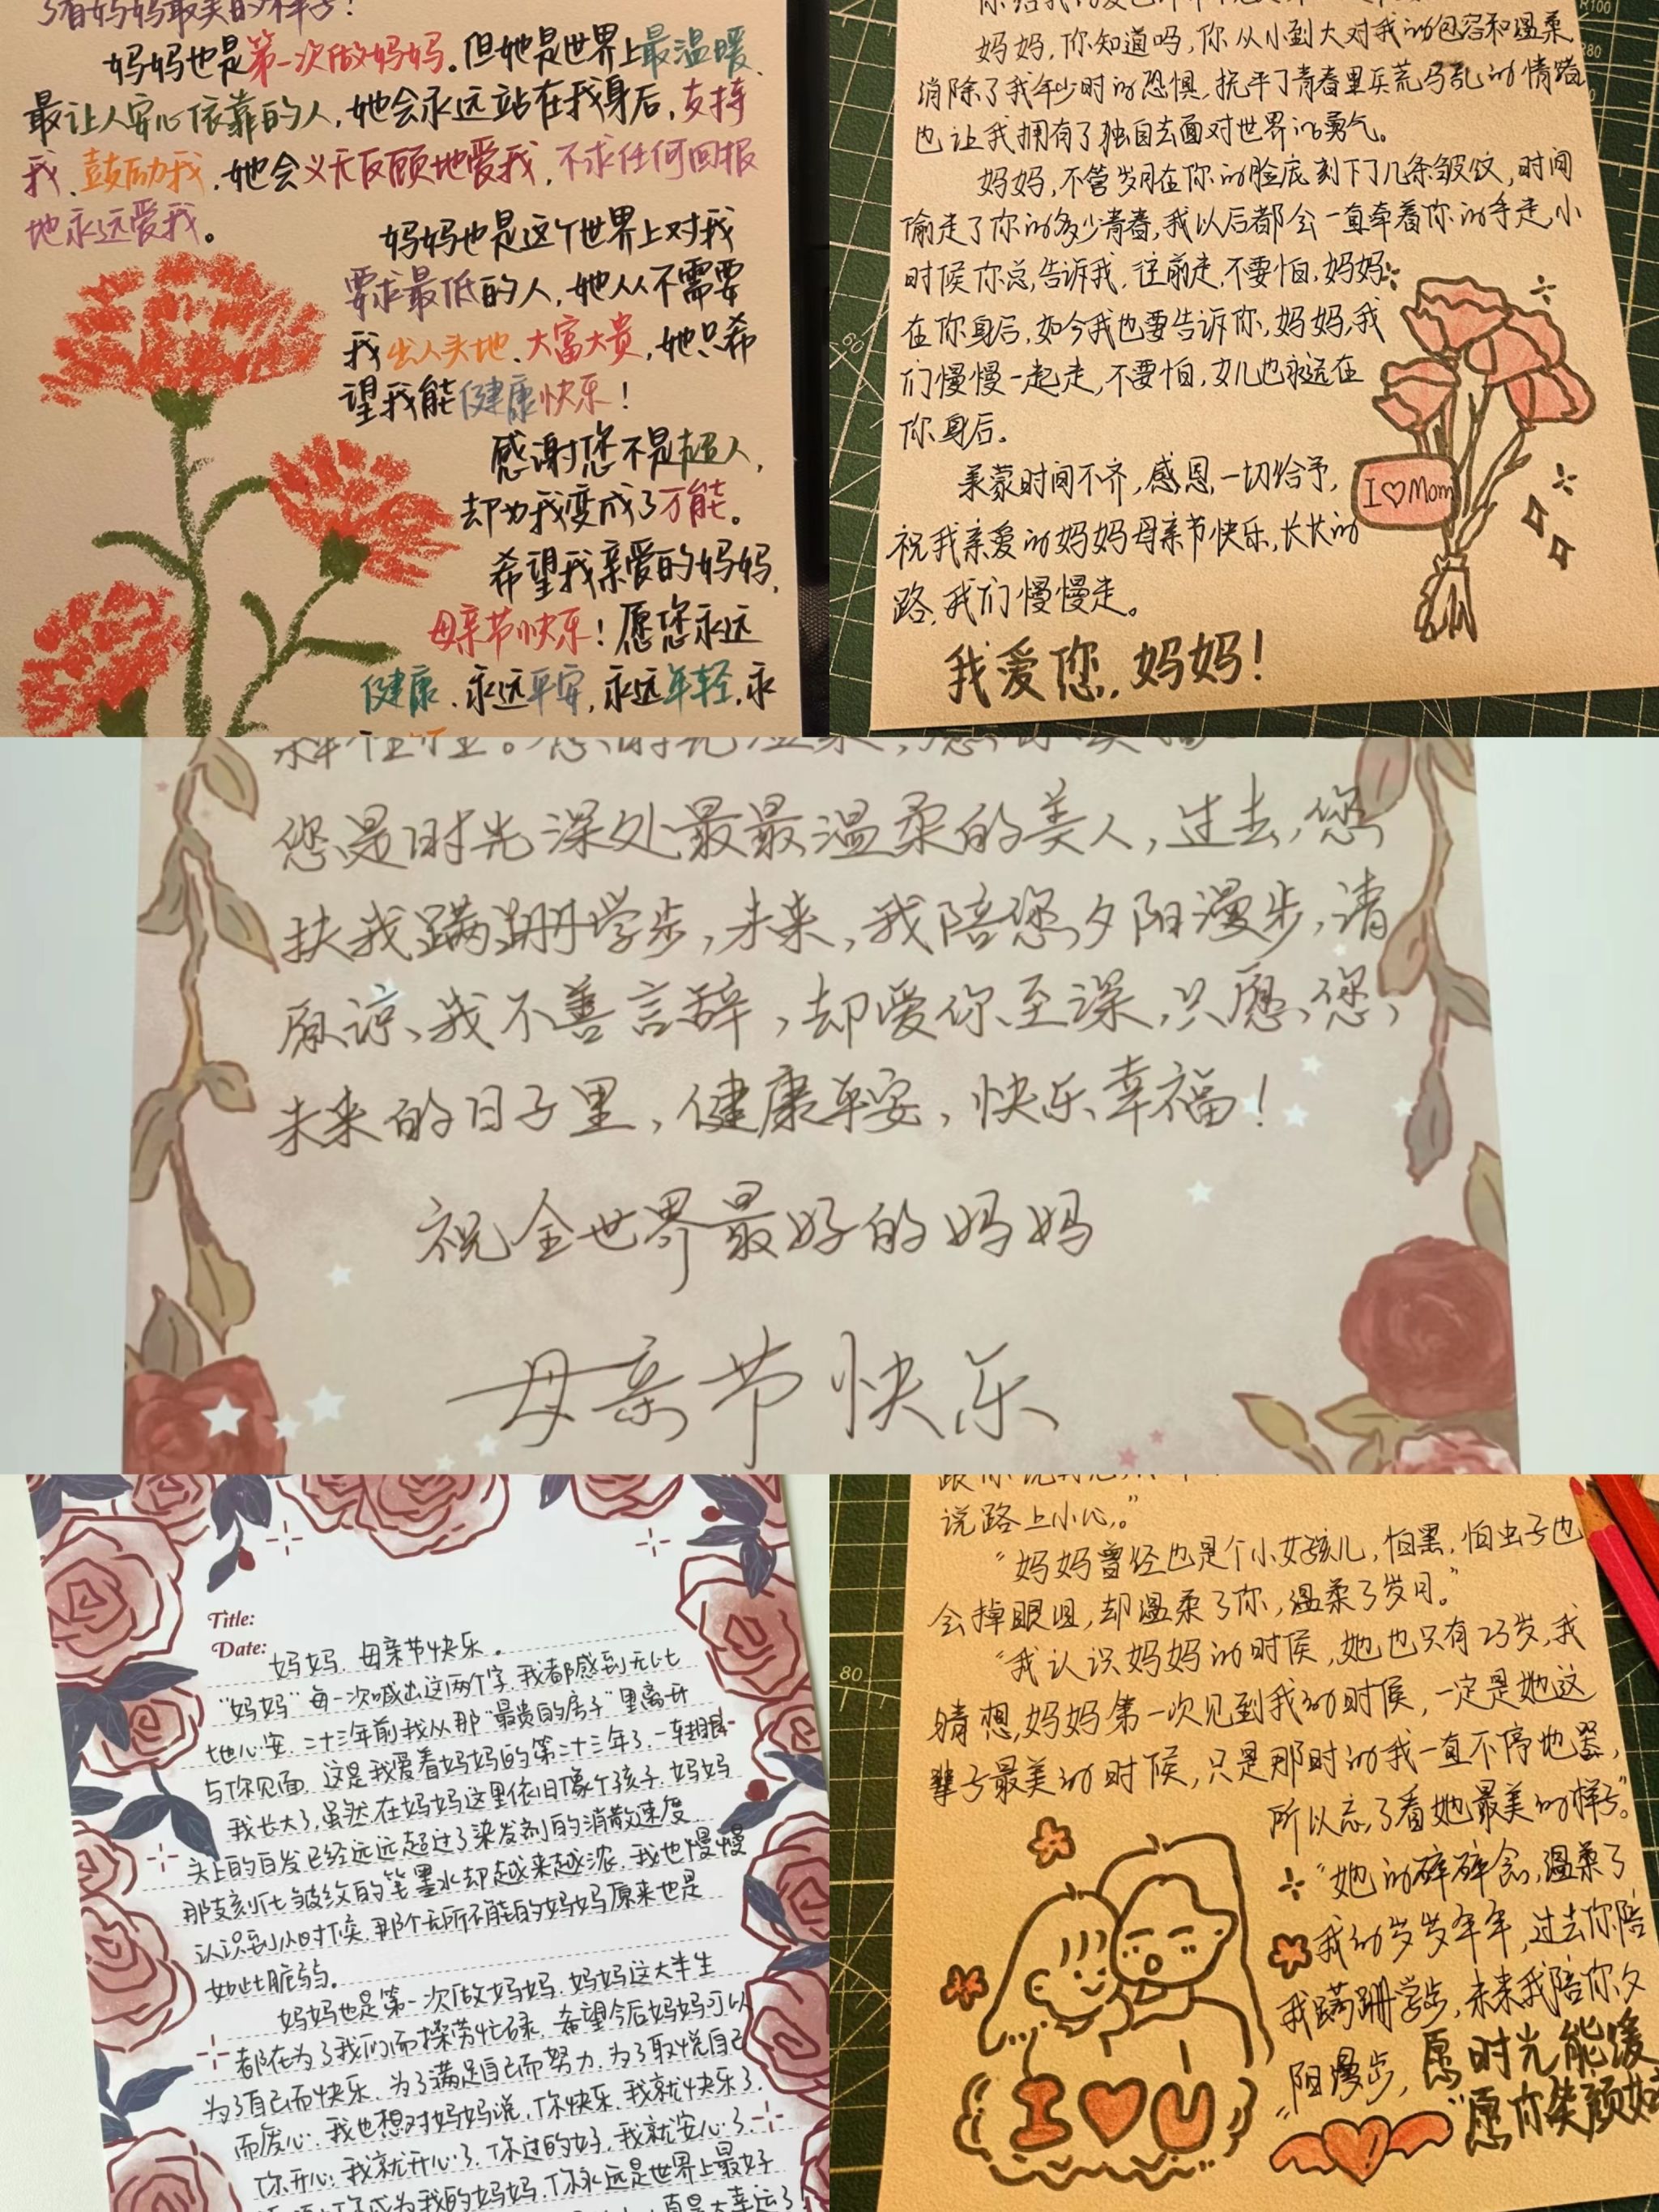 了看妈妈最美的样子！
妈妈也是第一次做妈妈。但她是世界上最温暖、
最让人安心依靠的人，她会永远站在我身后，支持
我、鼓励我，她会义无反顾地爱我，不求任何回报
地永远爱我。
妈妈也是这个世界上对我
要求最低的人，她从不需要
我出人头地、大富大贵，她只希
望我能健康快乐！
感谢您不是超人，
却为我变成了万能。
希望我亲爱的妈妈，
母亲节快乐！愿您永远
健康、永远平安，永远年轻，永
妈妈，你知道吗，你从小到大对我的包容和温柔
消除了我年少时的恐惧，抚平了青春里兵荒马乱的情绪
也让我拥有了独自去面对世界的勇气。
妈妈，不管岁月在你的脸庞刻下了几条皱纹，时间
偷走了你的多少青春，我以后都会一直牵着你的手走，小
时候你总告诉我，往前走，不要怕，妈妈
在你身后，如今我也要告诉你，妈妈，我
们慢慢一起走，不要怕，女儿也永远在
你身后。
承蒙时间不弃，感恩一切给予，
祝我亲爱的妈妈母亲节快乐，长长的
路，我们慢慢走。
我爱您，妈妈！
I♡Mom
您是时光深处最最温柔的美人，过去，您
扶我蹒跚学步，未来，我陪您夕阳漫步，请
原谅，我不善言辞，却爱你至深，只愿，您，
未来的日子里，健康平安，快乐幸福！
祝全世界最好的妈妈
母亲节快乐
Title:
Date:
妈妈，母亲节快乐。
“妈妈”每一次喊出这两个字，我都感到无比
地心安，二十三年前我从那“最贵的房子”里离开
与你见面，这是我爱着妈妈的第二十三年了，一转眼
我长大了，虽然在妈妈这里依旧像个孩子，妈妈
头上的白发已经远远超过了染发剂的消散速度
那支刻化皱纹的笔墨水却越来越浓，我也慢慢
认识到小时候，那个无所不能的妈妈原来也是
如此脆弱。
妈妈也是第一次做妈妈，妈妈这大半生
都在为了我们而操劳忙碌，希望今后妈妈可以
为了自己而快乐，为了满足自己而努力，为了取悦自己
而废心，我也想对妈妈说，你快乐，我就快乐了，
你开心，我就开心了，你过的好，我就安心了，
你成为我的妈妈，你永远是世界上最好
真是太幸运了！
说路上小心。”
“妈妈曾经也是个小女孩儿，怕黑，怕虫子也
会掉眼泪，却温柔了你，温柔了岁月。”
“我认识妈妈的时候，她也只有23岁，我
猜想，妈妈第一次见到我的时候，一定是她这
辈子最美的时候，只是那时的我一直不停地哭，
所以忘了看她最美的样子。”
“她的碎碎念，温柔了
我的岁岁年年，过去你陪
我蹒跚学步，未来我陪你夕
阳漫步，愿时光能缓
愿你笑颜如
I♥U